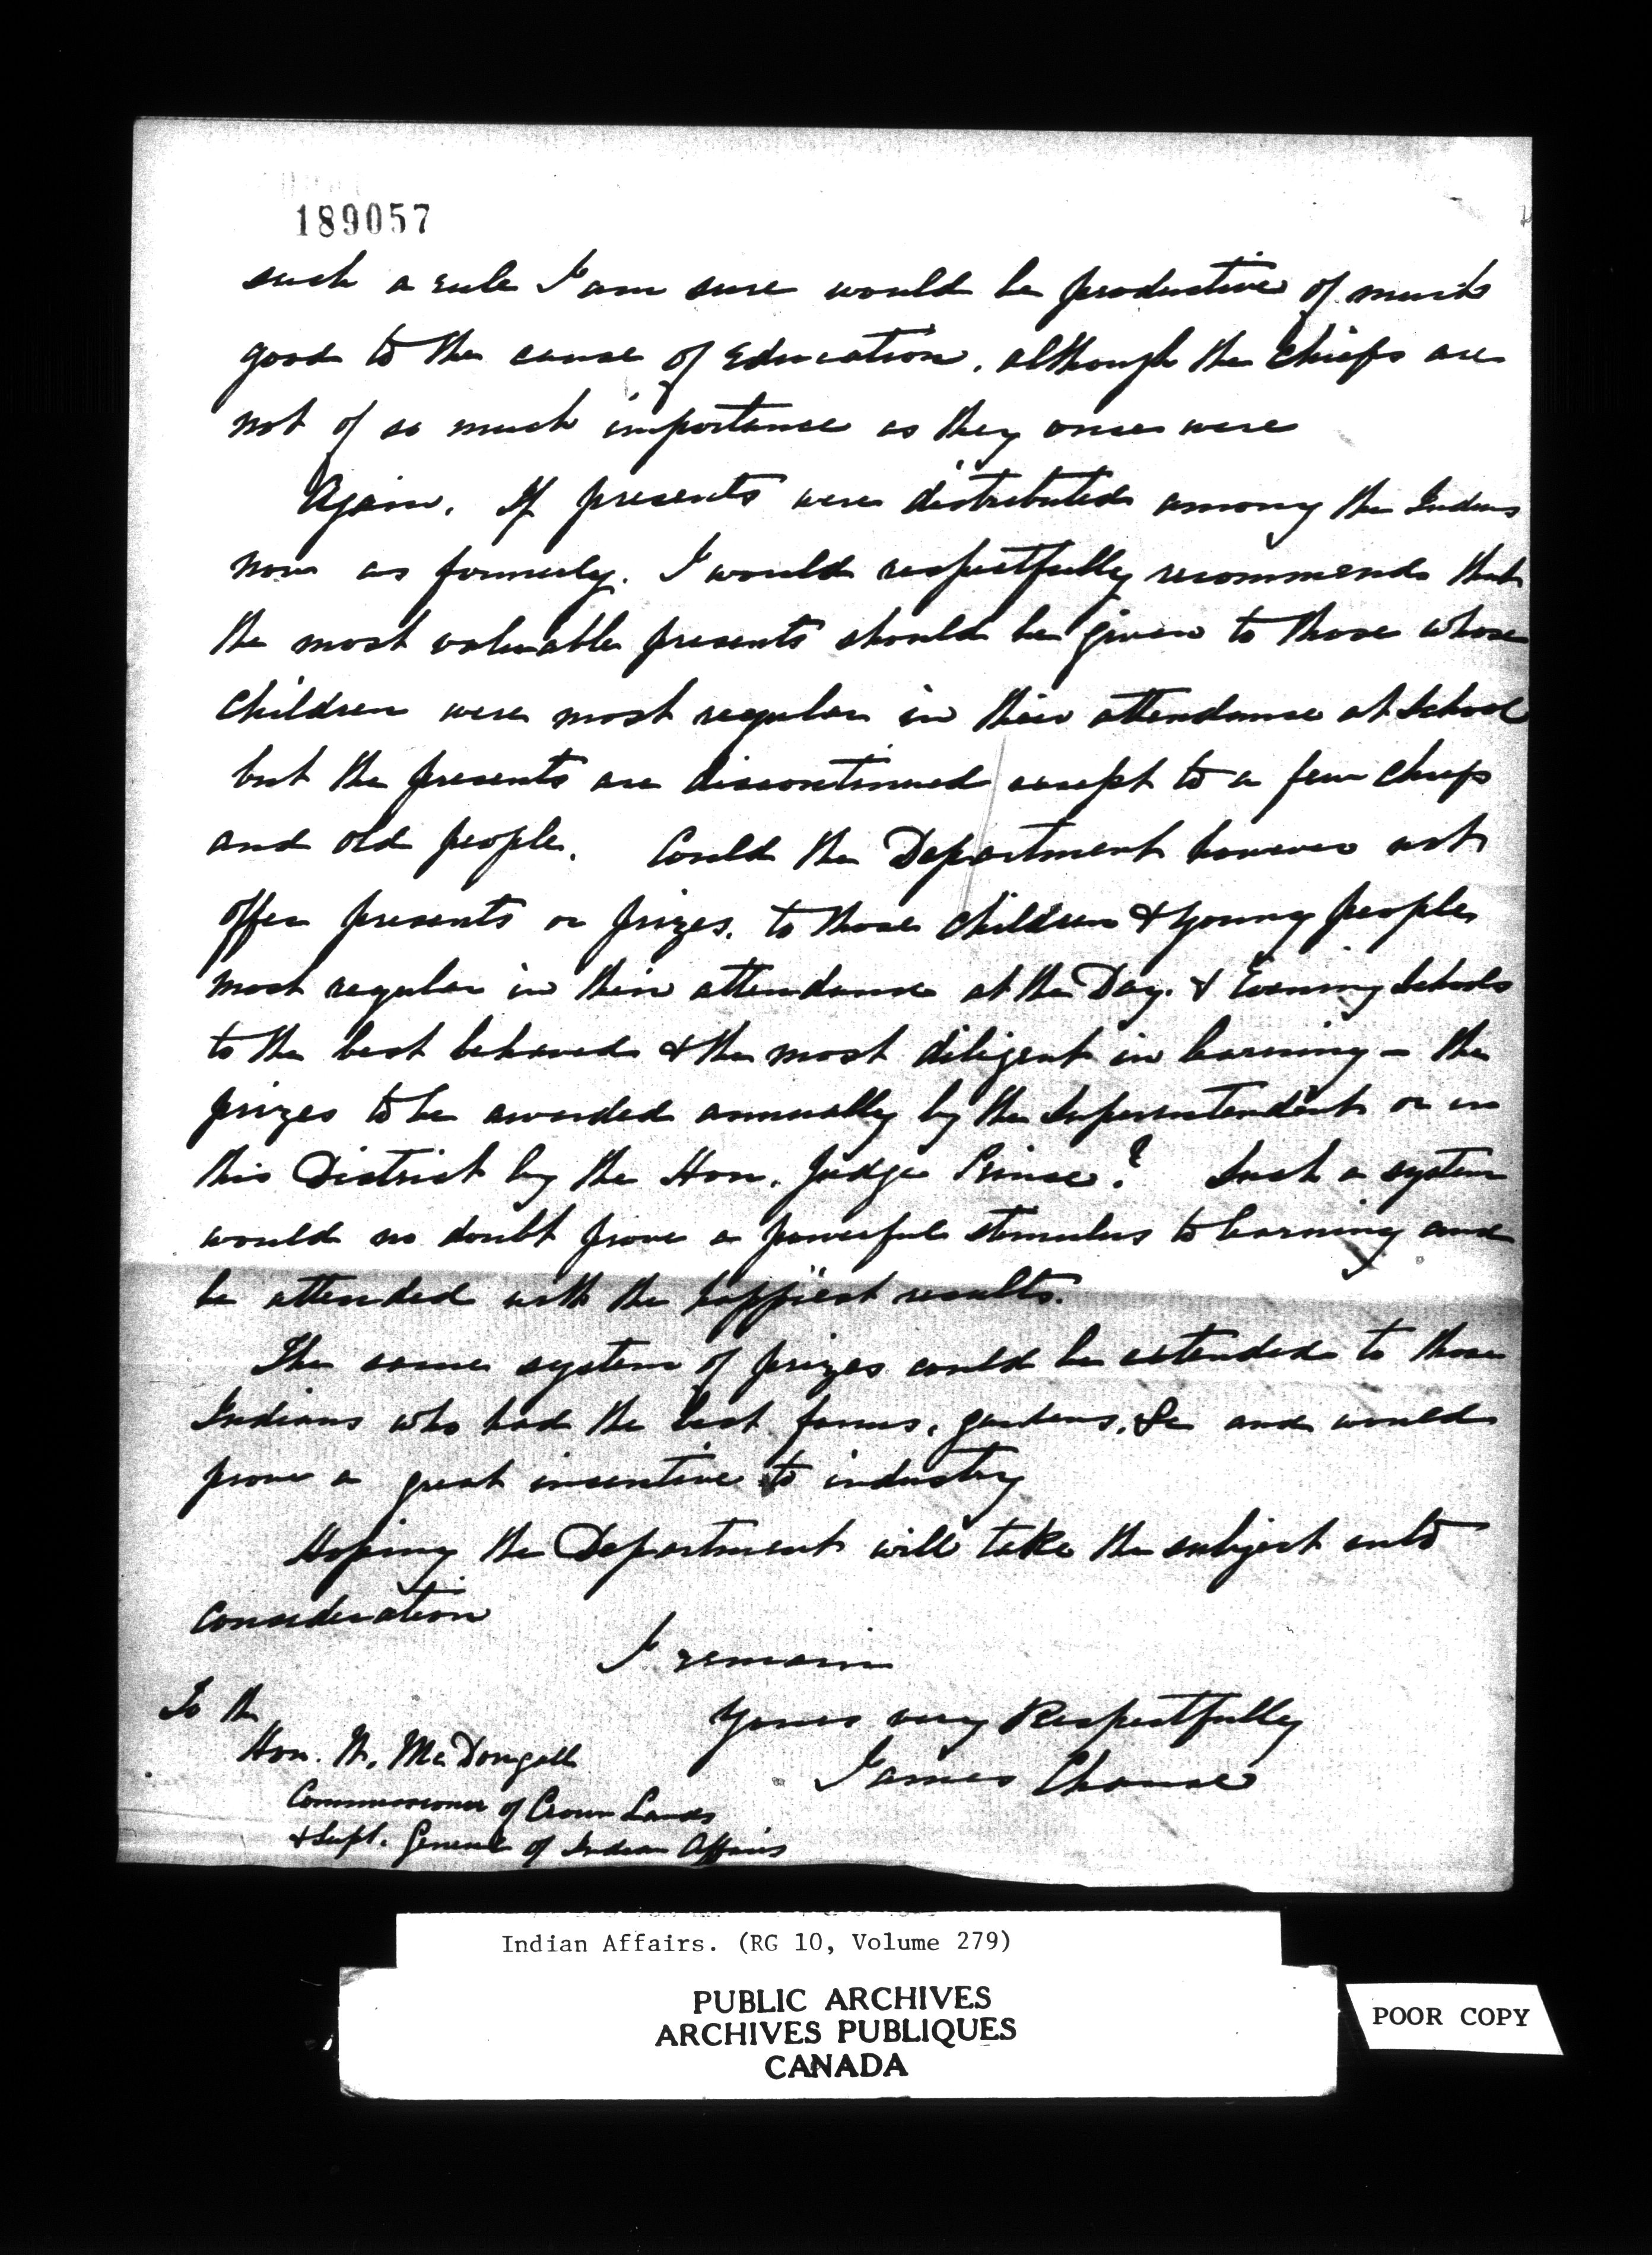 189057
such a rule I am sure would be productive of much
good to the cause of Education, although the Chiefs are
not of so much importance as they once were
Again. If presents were distributed among the Indians
now as formerly. I would respectfully recommend that
the most valuable presents should be given to those whose
Children were most regular in their attendance at School
but the presents are discontinued except to a few Chiefs
and old people. Could the Department however not
offer presents or prizes, to those children & young people
most regular in their attendance at the Day. & Evening Schools
to the best behaved & the most diligent in learning - the
prizes to be awarded annually by the Superintendent or in
this District by the Hon. Judge Prince? Such a system
would no doubt prove a powerful stimulus to learning and
be attended with the happiest results.
The same system of prizes could be extended to those
Indians who had the best farms, gardens, &c and would
prove a great incentive to industry
Hoping the Department will take the subject into
consideration
I remain
Yours very Respectfully
James Chance
To the
Hon. W. McDougall
Commissioner of Crown Lands
& Supt. General of Indian Affairs
Indian Affairs. (RG 10, Volume 279)
PUBLIC ARCHIVES
ARCHIVES PUBLIQUES
CANADA
POOR COPY